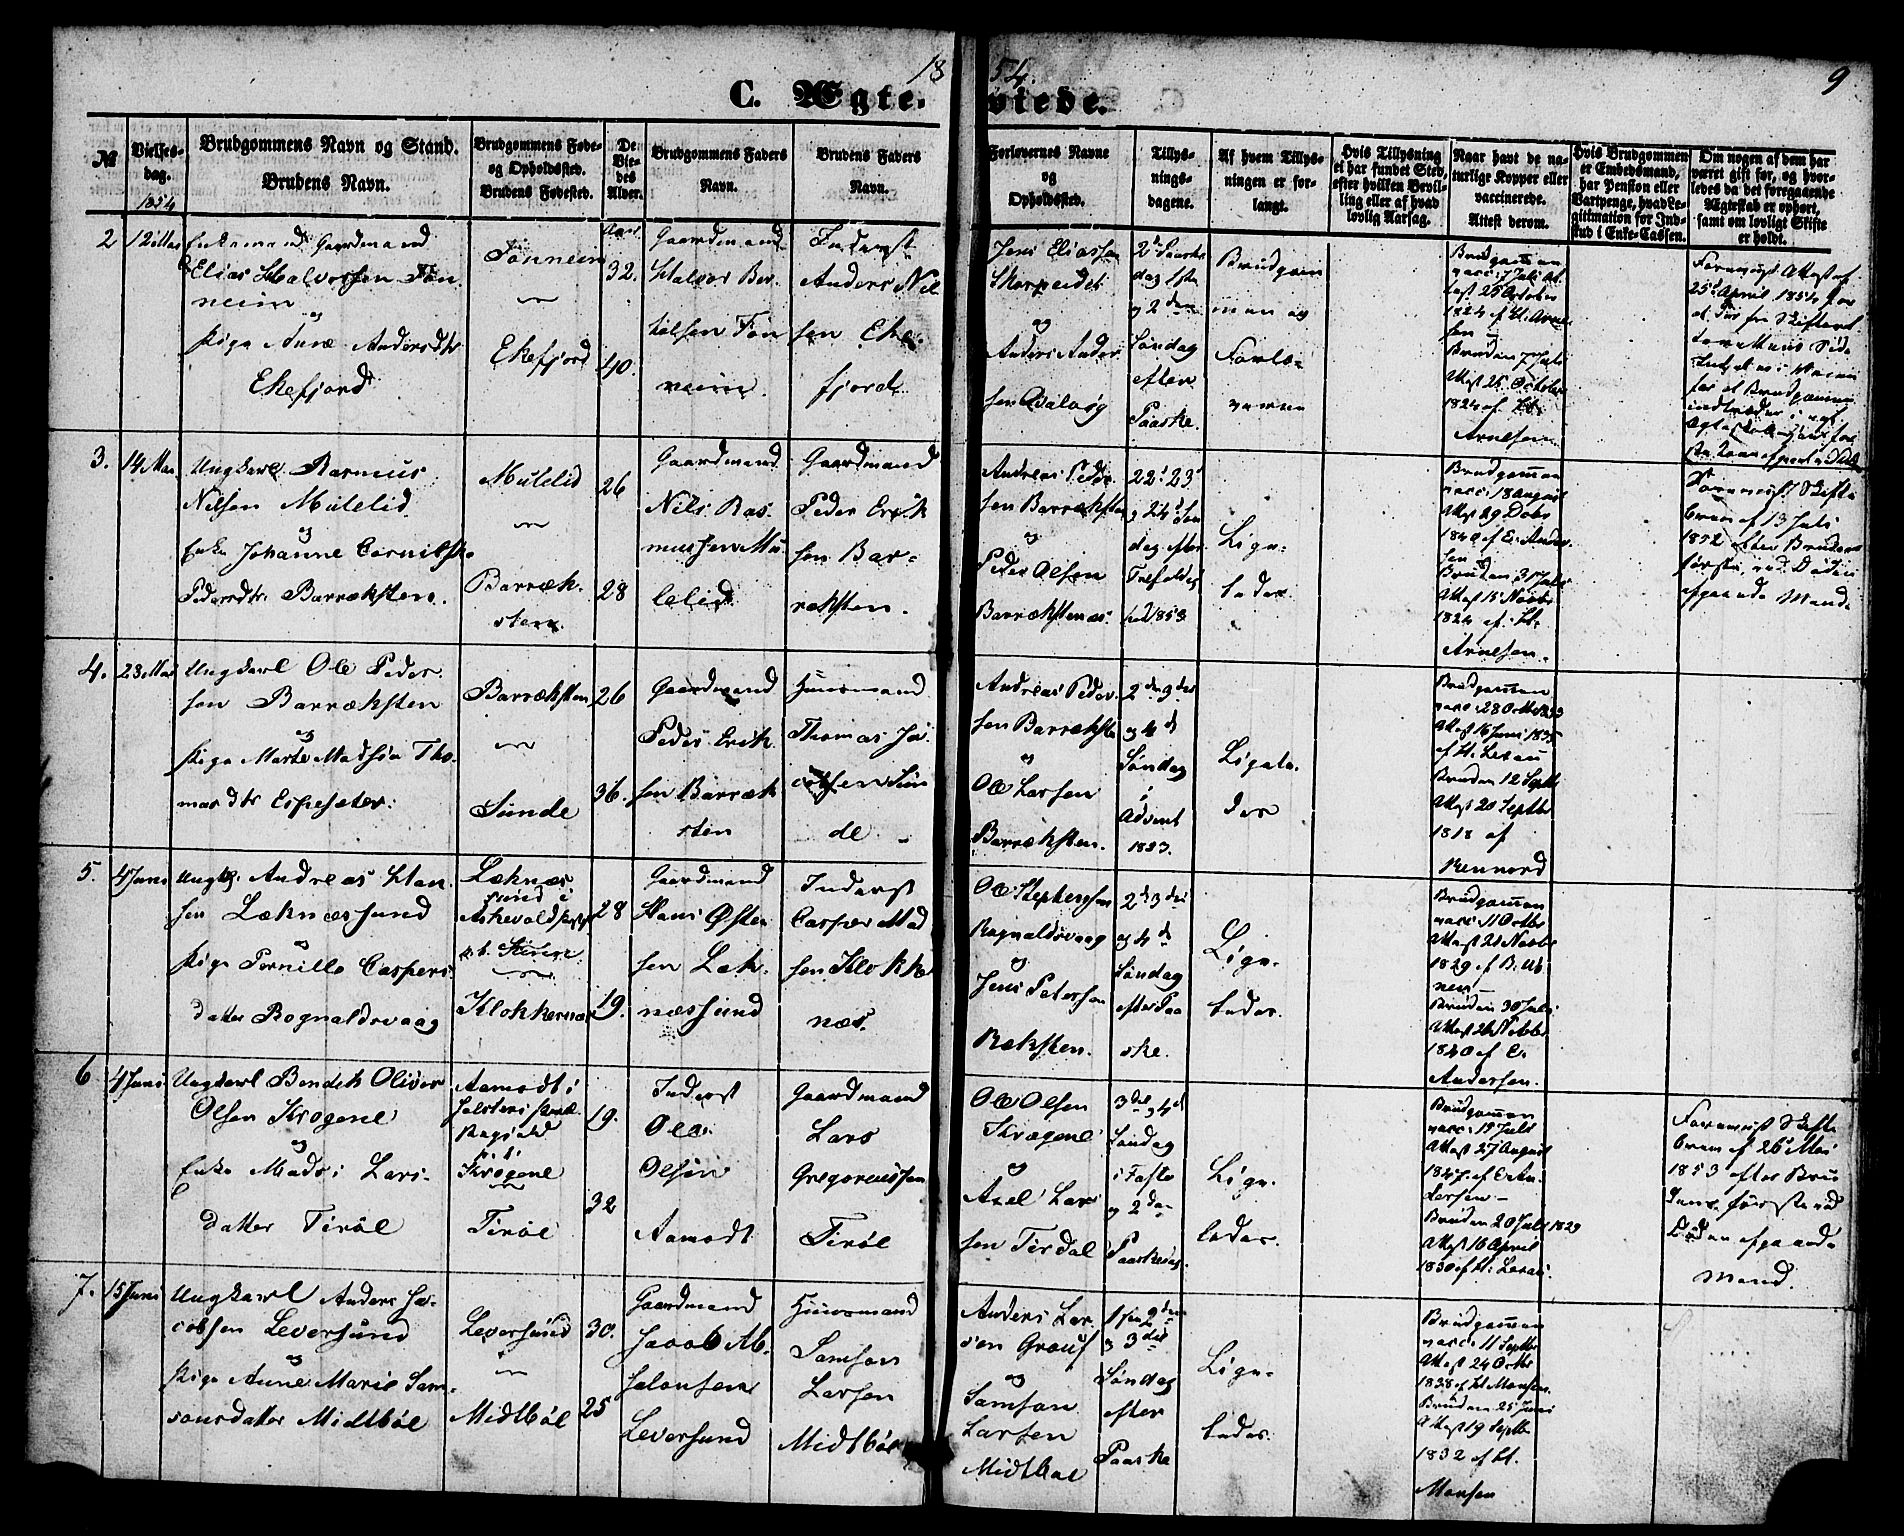 18 54.
9
C. Ægte-viede.
№
Vielses-
dag.
1854
Brudgommens Navn og Stand.
Brudens Navn.
Brudgommens Føde-
og Opholdssted.
Brudens Fødested.
De
Vie-
des
Alder.
Brudgommens Faders
Navn.
Brudens Faders
Navn.
Forlovernes Navne
og
Opholdssted.
Tillys-
nings-
dagene.
Af hvem Tillys-
ningen er for-
langt.
Hvis Tillysning
ei har fundet Sted,
efter hvilken Bevil-
ling eller af hvad
lovlig Aarsag.
Naar havt de na-
turlige Kopper eller
vaccinerede.
Attest derom.
Hvis Brudgommen
er Embedsmand,
har Pension eller
Vartpenge, hvad Le-
gitimation for Ind-
skud i Enke-Cassen.
Om nogen af dem har
været gift før, og hvor-
ledes da det foregaaende
Ægteskab er ophørt,
samt om lovligt Skifte
er holdt.
2
12 Mai
Enkemand Gaardmand
Elias Halvorsen Tøn
neim
og
Pige Anne Andersdtr
Ekefjord
Tønneim
Ekefjord
32.
40.
Gaardmand
Halvor Ber
telsen Tøn
neim
Inderst
Anders Niel
sen Eke
fjord
Jens Eliassen
Skorpeidet
og
Anders Ander
sen Balavg
2d Paaske
dag 1ste
og 2den
Søndag
efter
Paaske.
Brudgom
men og
Forlo-
verne
Brudgommen
vacc: 7 Juli
Attest 25 October
1824 af H. Arne
sen
Bruden 7 Juli
Attest 25 October
1824 af H:
Arnesen
25d April 1854
3.
14 Mai
Ungkarl Rasmus
Nilsen Mülelid
og
Enke Johanne Cornilse
Pedersdtr Barræksten.
Mülelid
Barræk-
sten
26
28
Gaardmand
Nils Ras
mussen Mü
lelid
Gaardmand
Peder Erik
sen Bar-
ræksten.
Andreas Peder
sen Barræksten
og
Peder Olsen
Barrækstenæs.
22d 23d
og 24d Søn
dag efter
Trefoldig
hed 1853
Lige-
ledes.
Brudgommen
vacc: 18 August
Attest 29 Decbr
1840 af E: Ander
sen
Bruden 31 Juli
Attest 15 Novbr
1824 af H:
Arnesen.
Foreviist Skifte
brev af 13 Juli
1852 efter Brudens
første, ved Døden
afgaaede Mand.
4.
23 Mai
Ungkarl Ole Peder
sen Barræksten
og
Pige Marte Madsia Tho
masdtr Espesæter.
Barræksten
Sunde
26
36.
Gaardmand
Peder Erik
sen Barræk
sten
Huusmand
Thomas Ja
cobsen Sun
de
Andreas Peder
sen Barræksten
og
Ole Larsen
Barræksten.
2den 3die
og 4d
Søndag
i
Advent
1853.
Ligele-
des
Brudgommen
vacc: 28 Octbr
Attest 16 Juni 1835
af H. Lexau
Bruden 12 Septbr
Attest 20 Septbr
1818 af
Rennord
5.
4 Juni
Ungk. Andreas Han
sen Læknæssund
og
Pige Pernille Caspers
datter Rognaldsvaag
Læknæs
sund i
Askevold
Klokkernæs
28
19.
Gaardmand
Hans Østen
sen Læk
næssund
Inderst
Casper Mad
sen Klokke
næs.
Ole Stephensen
Rognaldsvaag
og
Jens Petersen
Ræksten.
2d 3die
og 4d
Søndag
efter Paa
ske.
Lige-
ledes.
Brudgommen
vacc: 11 Octbr
Attest 21 Novbr
1829 af B. Ut
nen
Bruden 30 Juli
Attest 26 Novbr
1840 af E.
Andersen.
6
4 Juni
Ungkarl Bendik Oliver
Olsen Krogene
og
Enke Madsi Lars
datter Tirøl
Aamodt i
Jølsters
Krogene
Tirøl
19.
32
Inderst
Ole
Olsen
Aamodt
Gaardmand
Lars
Gregoriussen
Tirøl
Ole Olsen
Krogene
og
Axel Lar
sen Tirdal
3die og 4d
Søndag
i Faste
og 2den
Paaskedag.
Lige-
ledes.
Brudgommen
vacc: 19 Juli
Attest 27 August
1847 af
Larsen
Bruden 20 Juli 1829
Attest 16 April
1830 af H: Lexau.
Foreviist Skifte
brev af 26 Mai
1853 efter Bru
dens første ved
Døden afgaaede
Mand.
7.
15 Juni
Ungkarl Anders Ja-
cobsen Leversund
og
Pige Anne Marie Sam-
sonsdatter Midtbøl
Leversund
Midtbøl
30.
25
Gaardmand
Jacob Ab-
salonsen
Leversund
Huusmand
Samson
Larsen
Midtbøl
Anders Lar
sen Grov
og
Samson
Larsen
Midtbøl
1ste 2den
og 3die
Søndag
efter
Paaske
Lige-
ledes.
Brudgommen
vacc: 11 Septbr
Attest 24 Octbr
1838 af H Monsen.
Bruden 25 Juni
Attest 19 Septbr
1832 af H.
Monsen